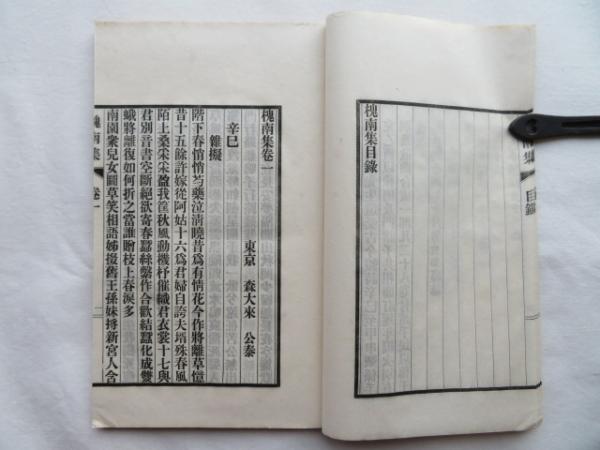 槐南集目錄
目錄
槐南集卷一
東京 森大來 公泰
辛巳
雜擬
階下春悄悄芍藥泣淸曉昔爲有情花今作將離草憶
昔十五餘許嫁從阿姑十六爲君婦自誇夫壻殊春風
陌上桑采采盈我筐秋風動機杼催織君衣裳十七與
君別音書空斷絕欲寄春蠶絲繫作合歡結蠶化成雙
蛾將離復如何折之當誰贈枝上春淚多
南園衆兒女鬭草笑相語姊拔舊王孫妹捋新宮人合
槐南集 卷一